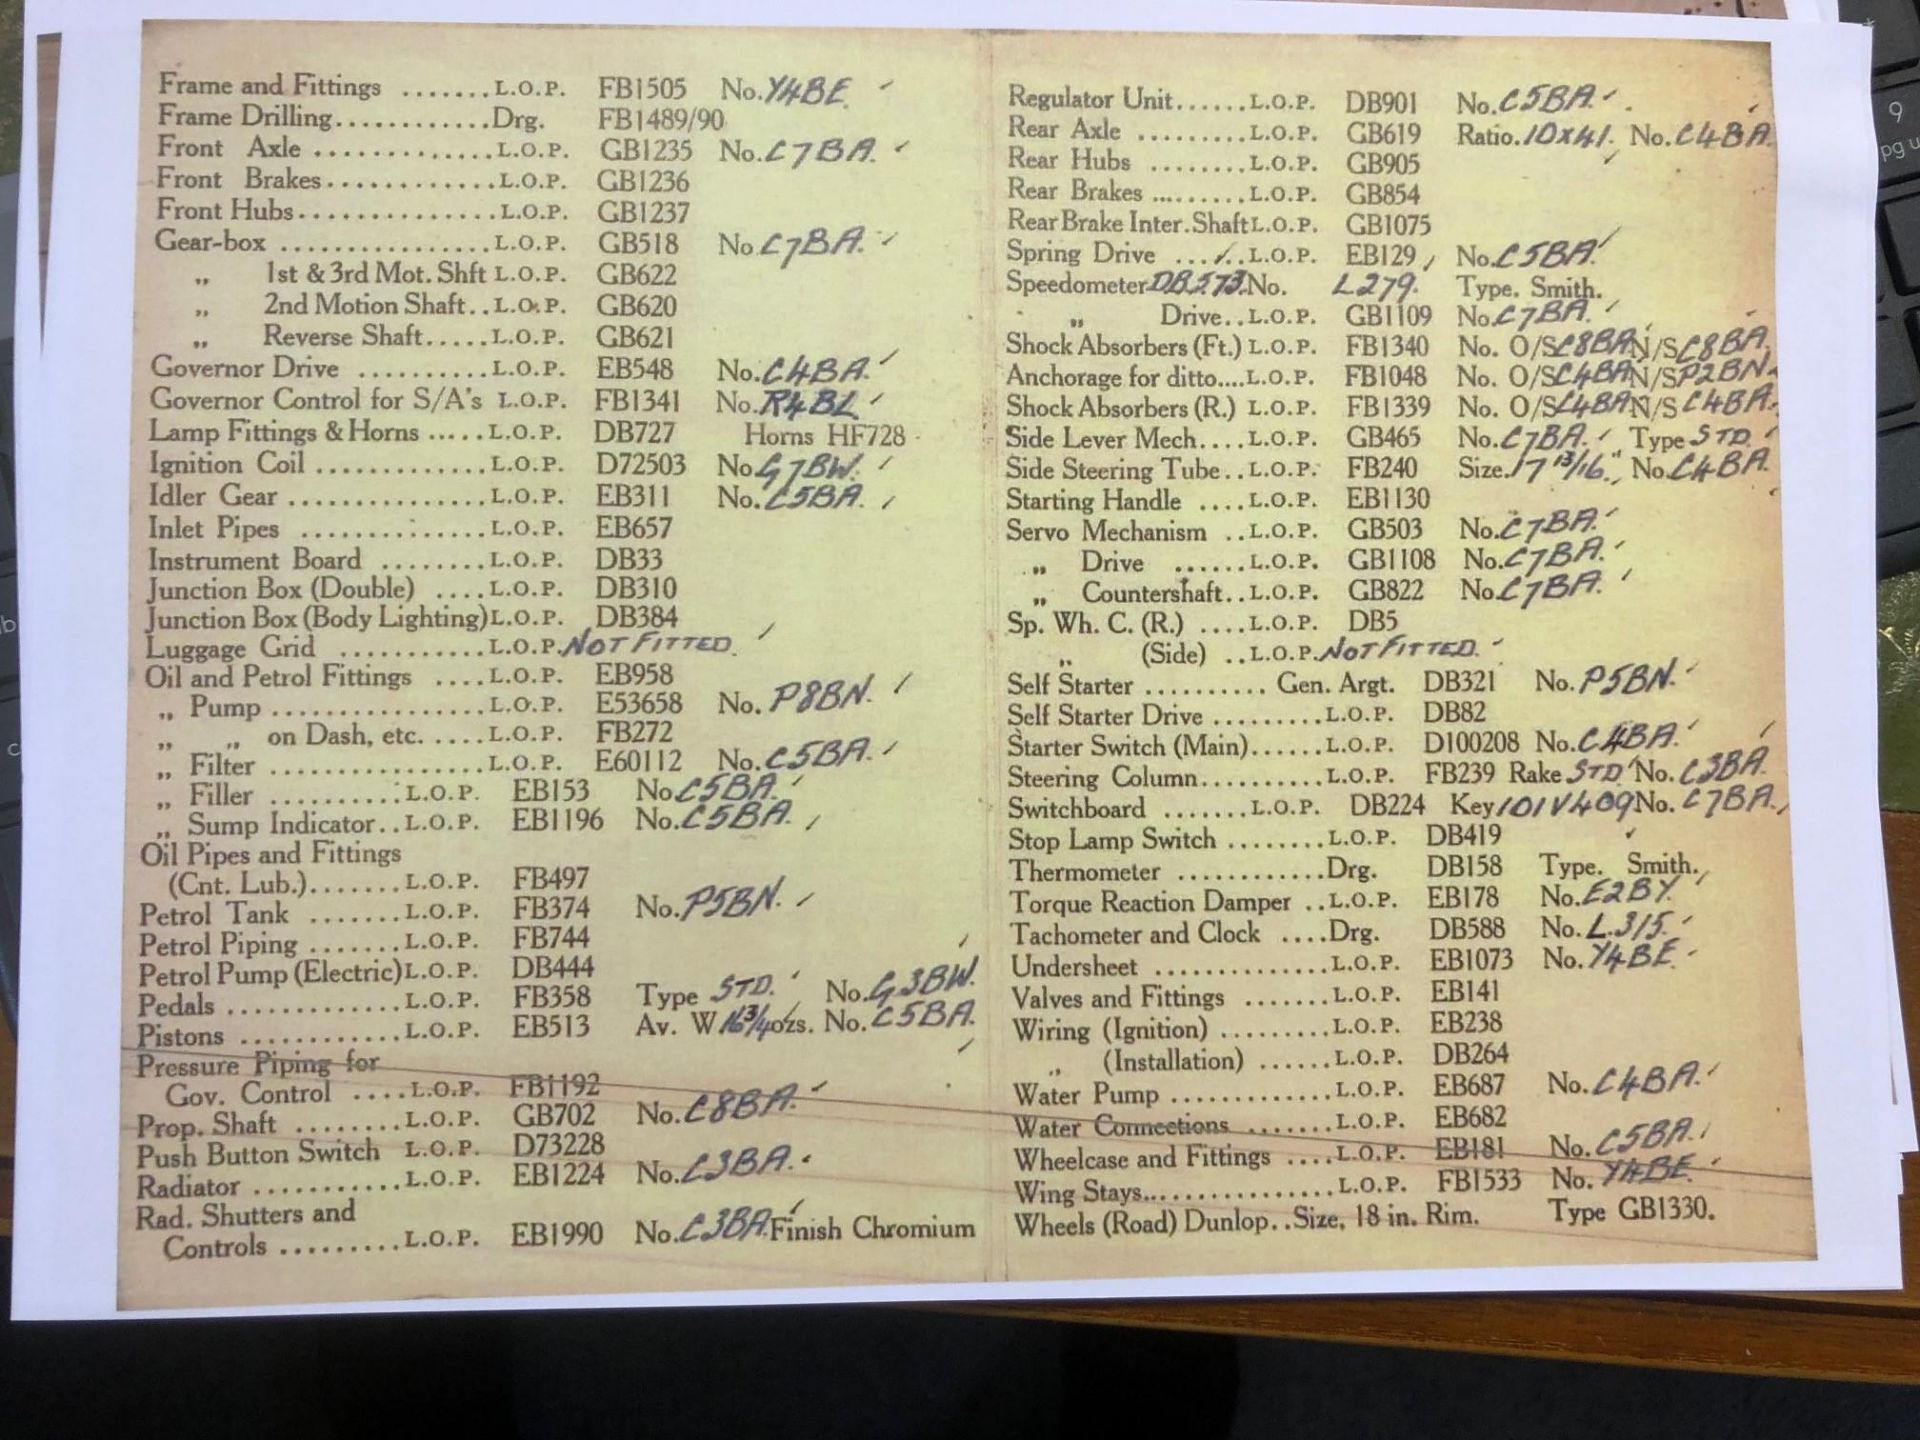 Frame and Fittings .......L.O.P. FB1505 No. Y4BE.
Frame Drilling............Drg. FB1489/90
Front Axle ..............L.O.P. GB1235 No. C7BA.
Front Brakes.............L.O.P. GB1236
Front Hubs...............L.O.P. GB1237
Gear-box ................L.O.P. GB518 No. C7BA.
„ 1st & 3rd Mot. Shft L.O.P. GB622
„ 2nd Motion Shaft..L.O.P. GB620
„ Reverse Shaft.....L.O.P. GB621
Governor Drive ..........L.O.P. EB548 No. C4BA.
Governor Control for S/A's L.O.P. FB1341 No. R4BL
Lamp Fittings & Horns .....L.O.P. DB727 Horns HF728
Ignition Coil .............L.O.P. D72503 No. G7BW.
Idler Gear ................L.O.P. EB311 No. C5BA.
Inlet Pipes ...............L.O.P. EB657
Instrument Board ........L.O.P. DB33
Junction Box (Double) ....L.O.P. DB310
Junction Box (Body Lighting) L.O.P. DB384
Luggage Grid ...........L.O.P. NOT FITTED.
Oil and Petrol Fittings ....L.O.P. EB958
„ Pump ................L.O.P. E53658 No. P8BN.
„ „ on Dash, etc. .....L.O.P. FB272
„ Filter ................L.O.P. E60112 No. C5BA.
„ Filler ..........L.O.P. EB153 No C5BA.
„ Sump Indicator..L.O.P. EB1196 No. C5BA.
Oil Pipes and Fittings
(Cnt. Lub.).......L.O.P. FB497
Petrol Tank .......L.O.P. FB374 No. P5BN.
Petrol Piping .......L.O.P. FB744
Petrol Pump (Electric) L.O.P. DB444
Pedals ............L.O.P. FB358 Type STD. No. G3BW.
Pistons ...........L.O.P. EB513 Av. W 16 3/4 ozs. No. C5BA.
Pressure Piping for
Gov. Control ....L.O.P. FB1192
Prop. Shaft ........L.O.P. GB702 No. C8BA.
Push Button Switch L.O.P. D73228
Radiator ...........L.O.P. EB1224 No. C3BA.
Rad. Shutters and
Controls .........L.O.P. EB1990 No. C3BA. Finish Chromium
Regulator Unit......L.O.P. DB901 No. C5BA.
Rear Axle .........L.O.P. GB619 Ratio. 10X41. No. C4BA.
Rear Hubs ........L.O.P. GB905
Rear Brakes .........L.O.P. GB854
Rear Brake Inter. Shaft L.O.P. GB1075
Spring Drive .....L.O.P. EB129 No. C5BA.
Speedometer DB573. No. L279. Type. Smith.
„ Drive..L.O.P. GB1109 No. C7BA.
Shock Absorbers (Ft.) L.O.P. FB1340 No. O/S C8BA N/S C8BA.
Anchorage for ditto....L.O.P. FB1048 No. O/S C4BA N/S P2BN.
Shock Absorbers (R.) L.O.P. FB1339 No. O/S C4BA N/S C4BA.
Side Lever Mech....L.O.P. GB465 No. C7BA. Type STD.
Side Steering Tube..L.O.P. FB240 Size. 17 13/16". No. C4BA.
Starting Handle ....L.O.P. EB1130
Servo Mechanism ..L.O.P. GB503 No. C7BA.
„ Drive ......L.O.P. GB1108 No. C7BA.
„ Countershaft..L.O.P. GB822 No. C7BA.
Sp. Wh. C. (R.) ....L.O.P. DB5
„ (Side) ..L.O.P. NOT FITTED.
Self Starter .......... Gen. Argt. DB321 No. P5BN.
Self Starter Drive .........L.O.P. DB82
Starter Switch (Main)......L.O.P. D100208 No. C4BA.
Steering Column...........L.O.P. FB239 Rake STD No. C3BA.
Switchboard .......L.O.P. DB224 Key 101V409 No. C7BA.
Stop Lamp Switch ........L.O.P. DB419
Thermometer ............Drg. DB158 Type. Smith.
Torque Reaction Damper ..L.O.P. EB178 No. E2BY.
Tachometer and Clock ....Drg. DB588 No. L.315.
Undersheet ..............L.O.P. EB1073 No. Y4BE.
Valves and Fittings .......L.O.P. EB141
Wiring (Ignition) .........L.O.P. EB238
„ (Installation) ......L.O.P. DB264
Water Pump .............L.O.P. EB687 No. C4BA.
Water Connections .......L.O.P. EB682
Wheelcase and Fittings ....L.O.P. EB181 No. C5BA.
Wing Stays................L.O.P. FB1533 No. Y4BE.
Wheels (Road) Dunlop..Size, 18 in. Rim. Type GB1330.
9
pg u